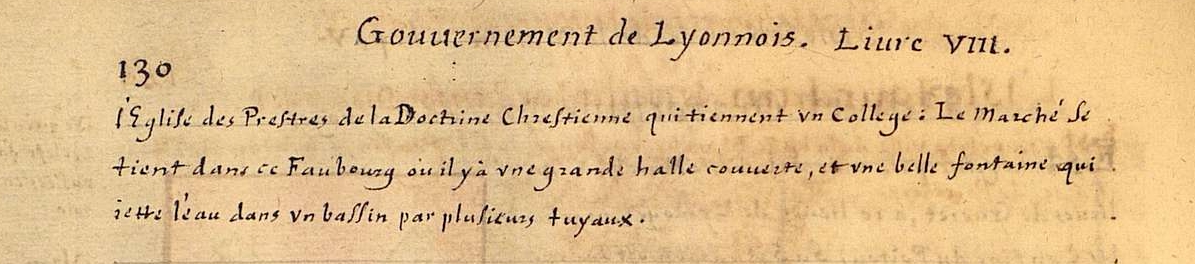 Gouuernement de Lyonnois. Liure VIII.
130
l'Eglise des Prestres de la Doctrine Chrestienne qui tiennent vn College : Le Marché se
tient dans ce Faubourg où il y à vne grande halle couuerte, et vne belle fontaine qui
iette l'eau dans vn bassin par plusieurs tuyaux.